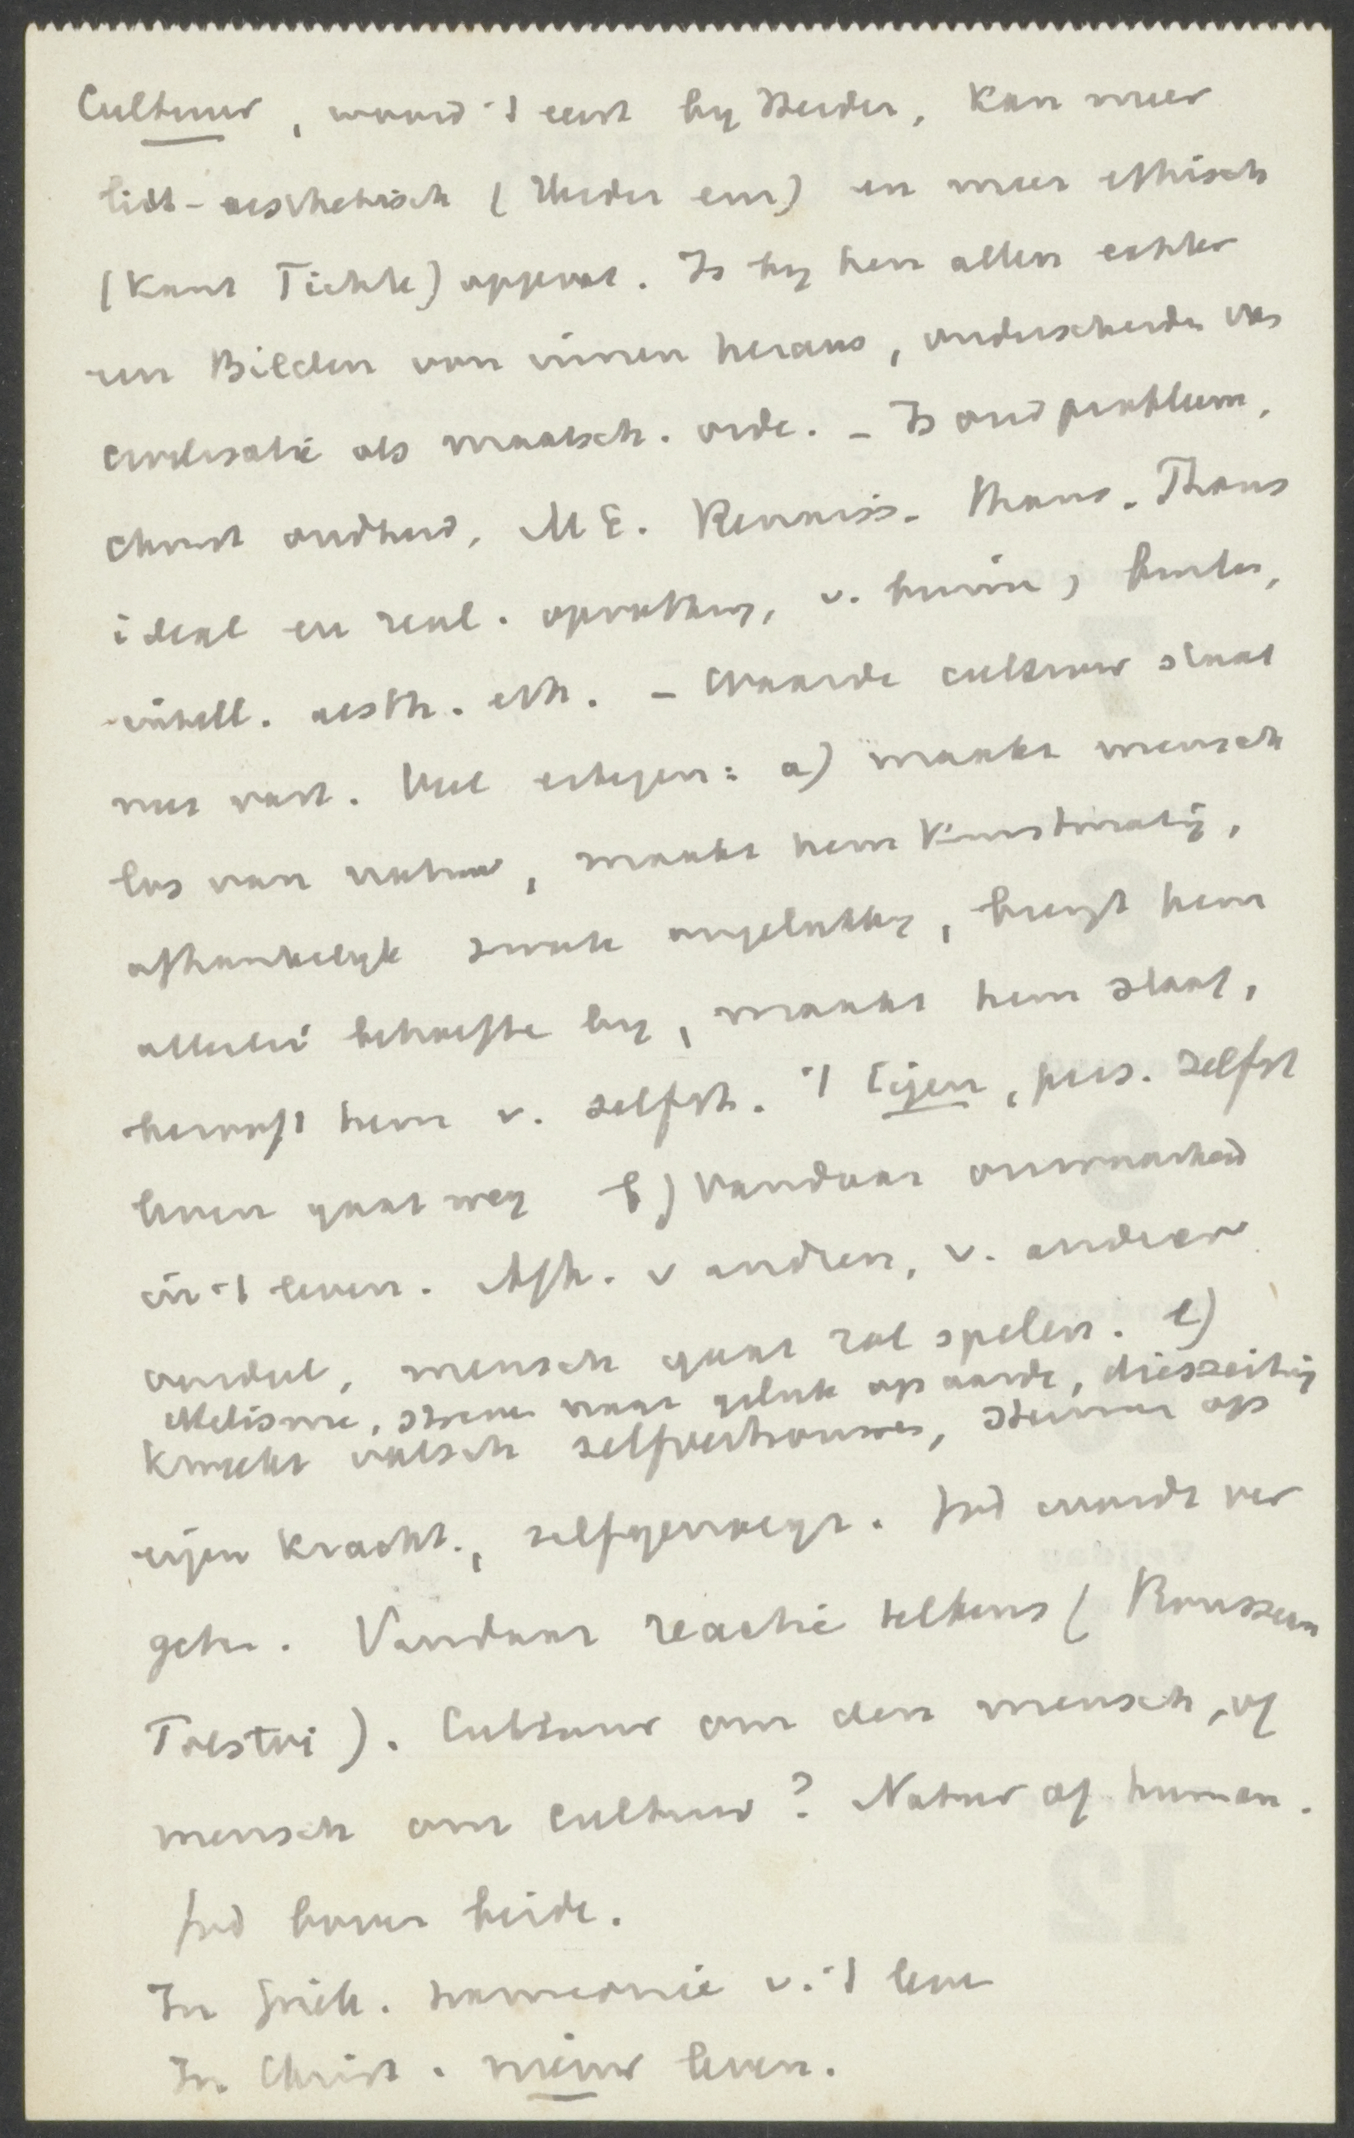 Cultuur, woord 't eerst by Herder, kan meer
aesthetisch (Herder em) en meer ethisch
(Kant Fichte) opgevat. Is by hen allen echter
een Bilden von innen heraus, onderscheiden van
civilisatie als maatsch. orde. - Is oud probleem,
Christ oudheid, M E. Renaiss. Thans
ideal en real. opvatting, v. binnen, buiten,
intell. aesth. eth. - Waarde cultuur staat
niet vast. Veel ertegen: a) maakt mensch
los van natuur, maakt hem kunstmatig,
afhankelyk zwak ongelukkig, brengt hem
allerlei behoefte by, maakt hem slaaf,
berooft hem v. zelfst. 't Eigen, pers. zelfst
leven gaat weg b) Vandaar onwaarheid
in 't leven. Afh. v andren, v. andrer
oordeel, mensch gaat rol spelen. c)
streven naar geluk op aarde, diesseitig
kweekt valsch zelfvertrouwen, steunen op
eigen kracht., zelfgenoegz. God wordt ver
geten. Vandaar reactie telkens (Rousseau
Tolstoi). Cultuur om den mensch, of
mensch om cultuur? Natuur of human.
God boven beide.
In Griek. harmonie v. 't leven
In Christ. nieuw leven.